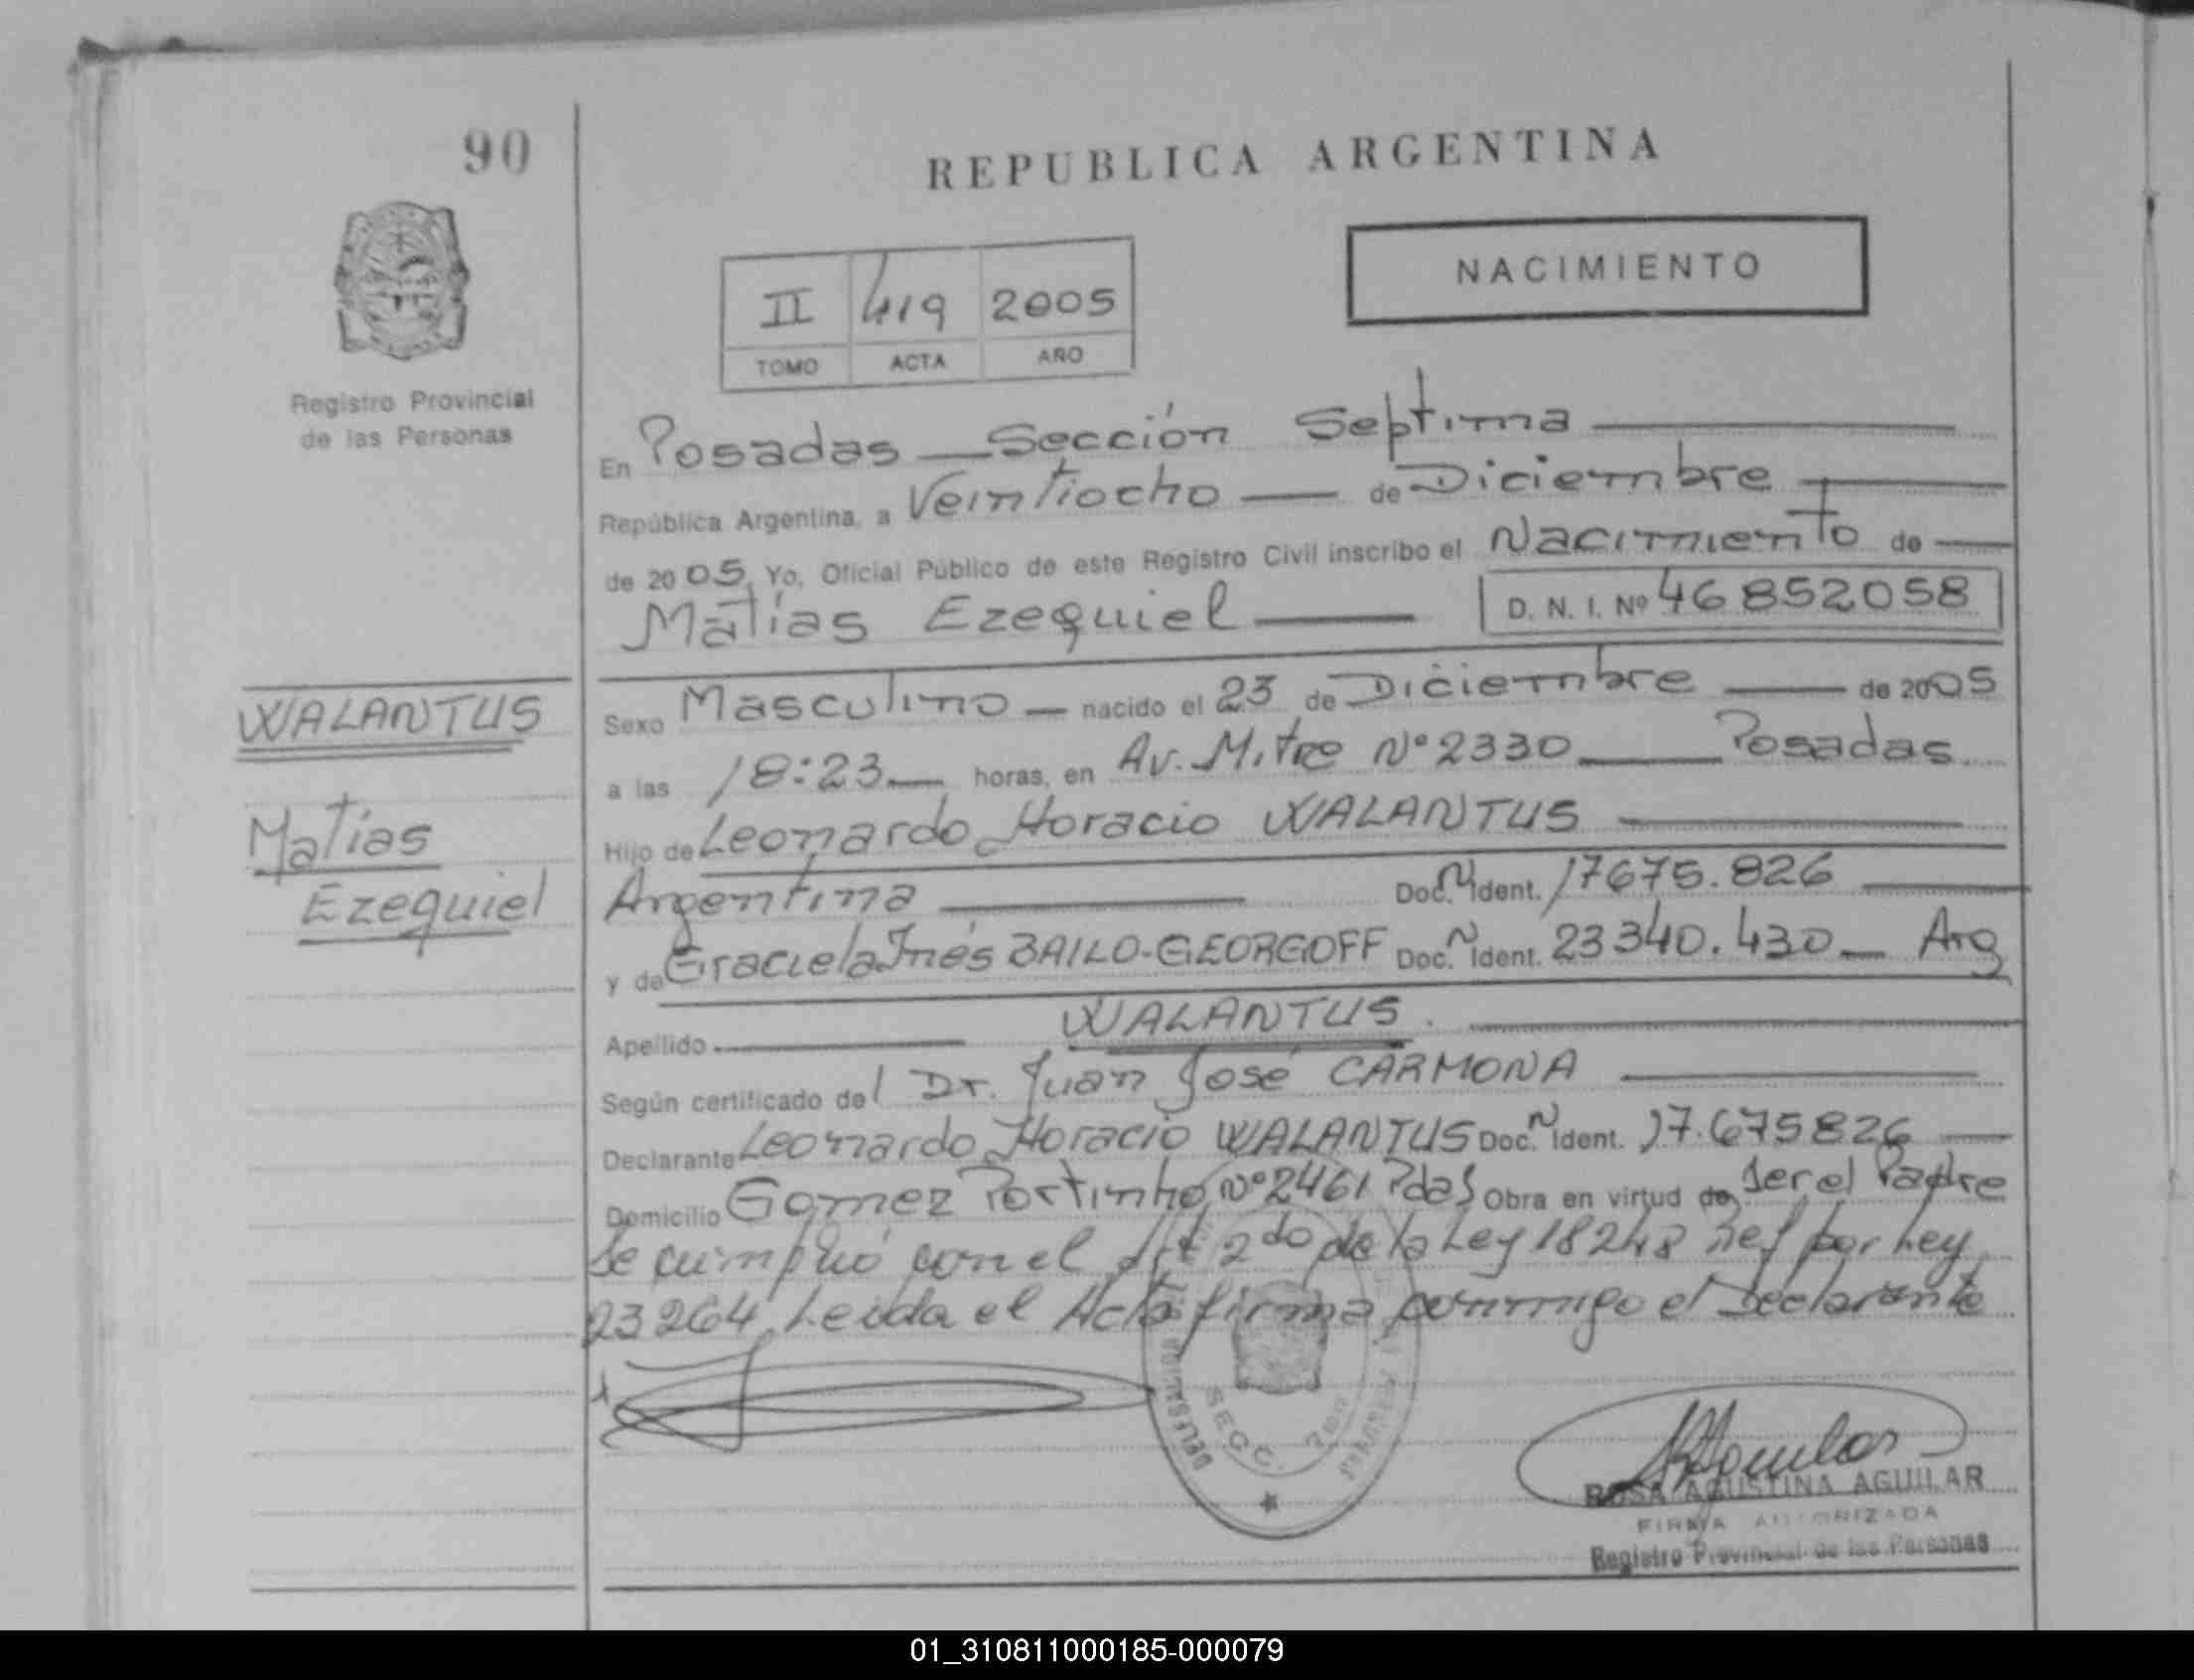 90
REPUBLICA ARGENTINA
NACIMIENTO
II 419 2005
TOMO ACTA AÑO
Registro Provincial
de las Personas
En Posadas — Sección Septima
República Argentina, a Veintiocho — de Diciembre
de 2005, Yo, Oficial Público de este Registro Civil inscribo el Nacimiento de
Matías Ezequiel — D. N. I. Nº 46852058
WALANTUS
Matías
Ezequiel
Sexo Masculino — nacido el 23 de Diciembre — de 2005
a las 18:23 — horas, en Av. Mitre Nº 2330 — Posadas.
Hijo de Leonardo Horacio WALANTUS
Argentina — Doc. N Ident. 17675.826
y de Graciela Inés BAILO-GEORGOFF Doc. N Ident. 23340.430 — Arg
Apellido — WALANTUS.
Según certificado del Dr. Juan José CARMONA
Declarante Leonardo Horacio WALANTUS Doc. N Ident. 17.675826
Domicilio Gomez Portinho Nº 2461 Pdas Obra en virtud de ser el Padre
Se cumplió con el Art 2do de la Ley 18248 Ref por Ley
23264, Leida el Acta firma conmigo el Declarante
SECC. 7
ROSA AGUSTINA AGUILAR
FIRMA AUTORIZADA
Registro Provincial de las Personas
01_310811000185-000079